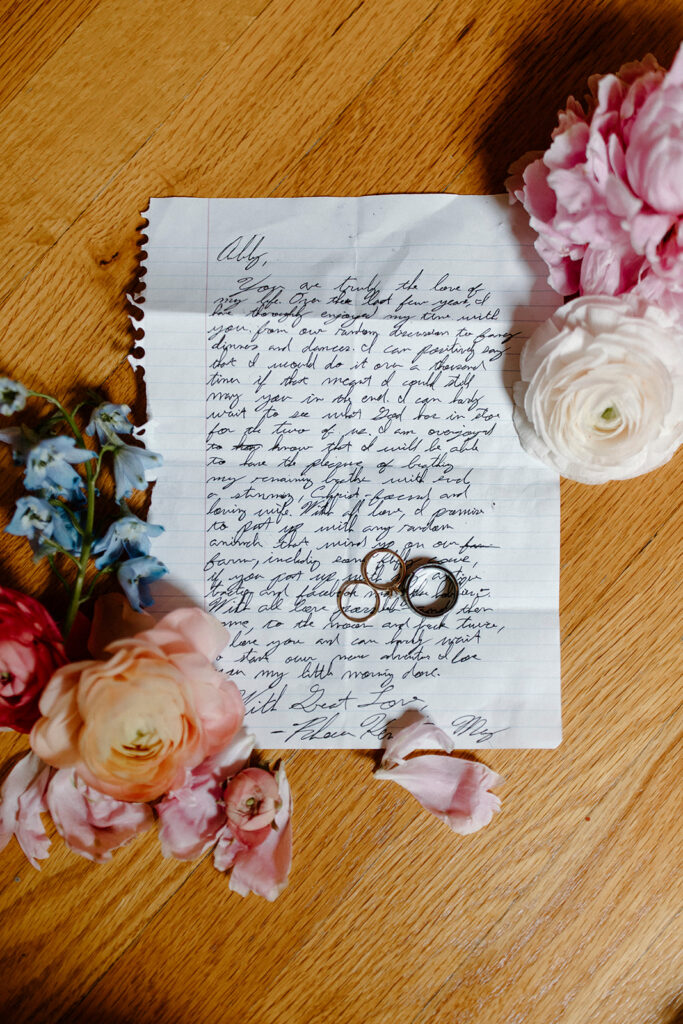 Abby,
You are truly the love of
my life. Over the last few years, I
have thoroughly enjoyed my time with
you, from our random discussion to fancy
dinners and dances. I can positively say
that I would do it over a thousand
times if that meant I could still
marry you in the end. I can hardly
wait to see what God has in store
for the two of us. I am overjoyed
to know that I will be able
to have the pleasure of
my remaining with such
a stunning, Christ-focused and
loving wife. With all love, I promise
to put up with any random
animals that wind up on our
farm, including some
if you put up with
tractors and facebook
With all love and then
some, to the moon and back twice,
I love you and can hardly wait
to start our new adventure. I love
you my little morning dove.
With Great Love,